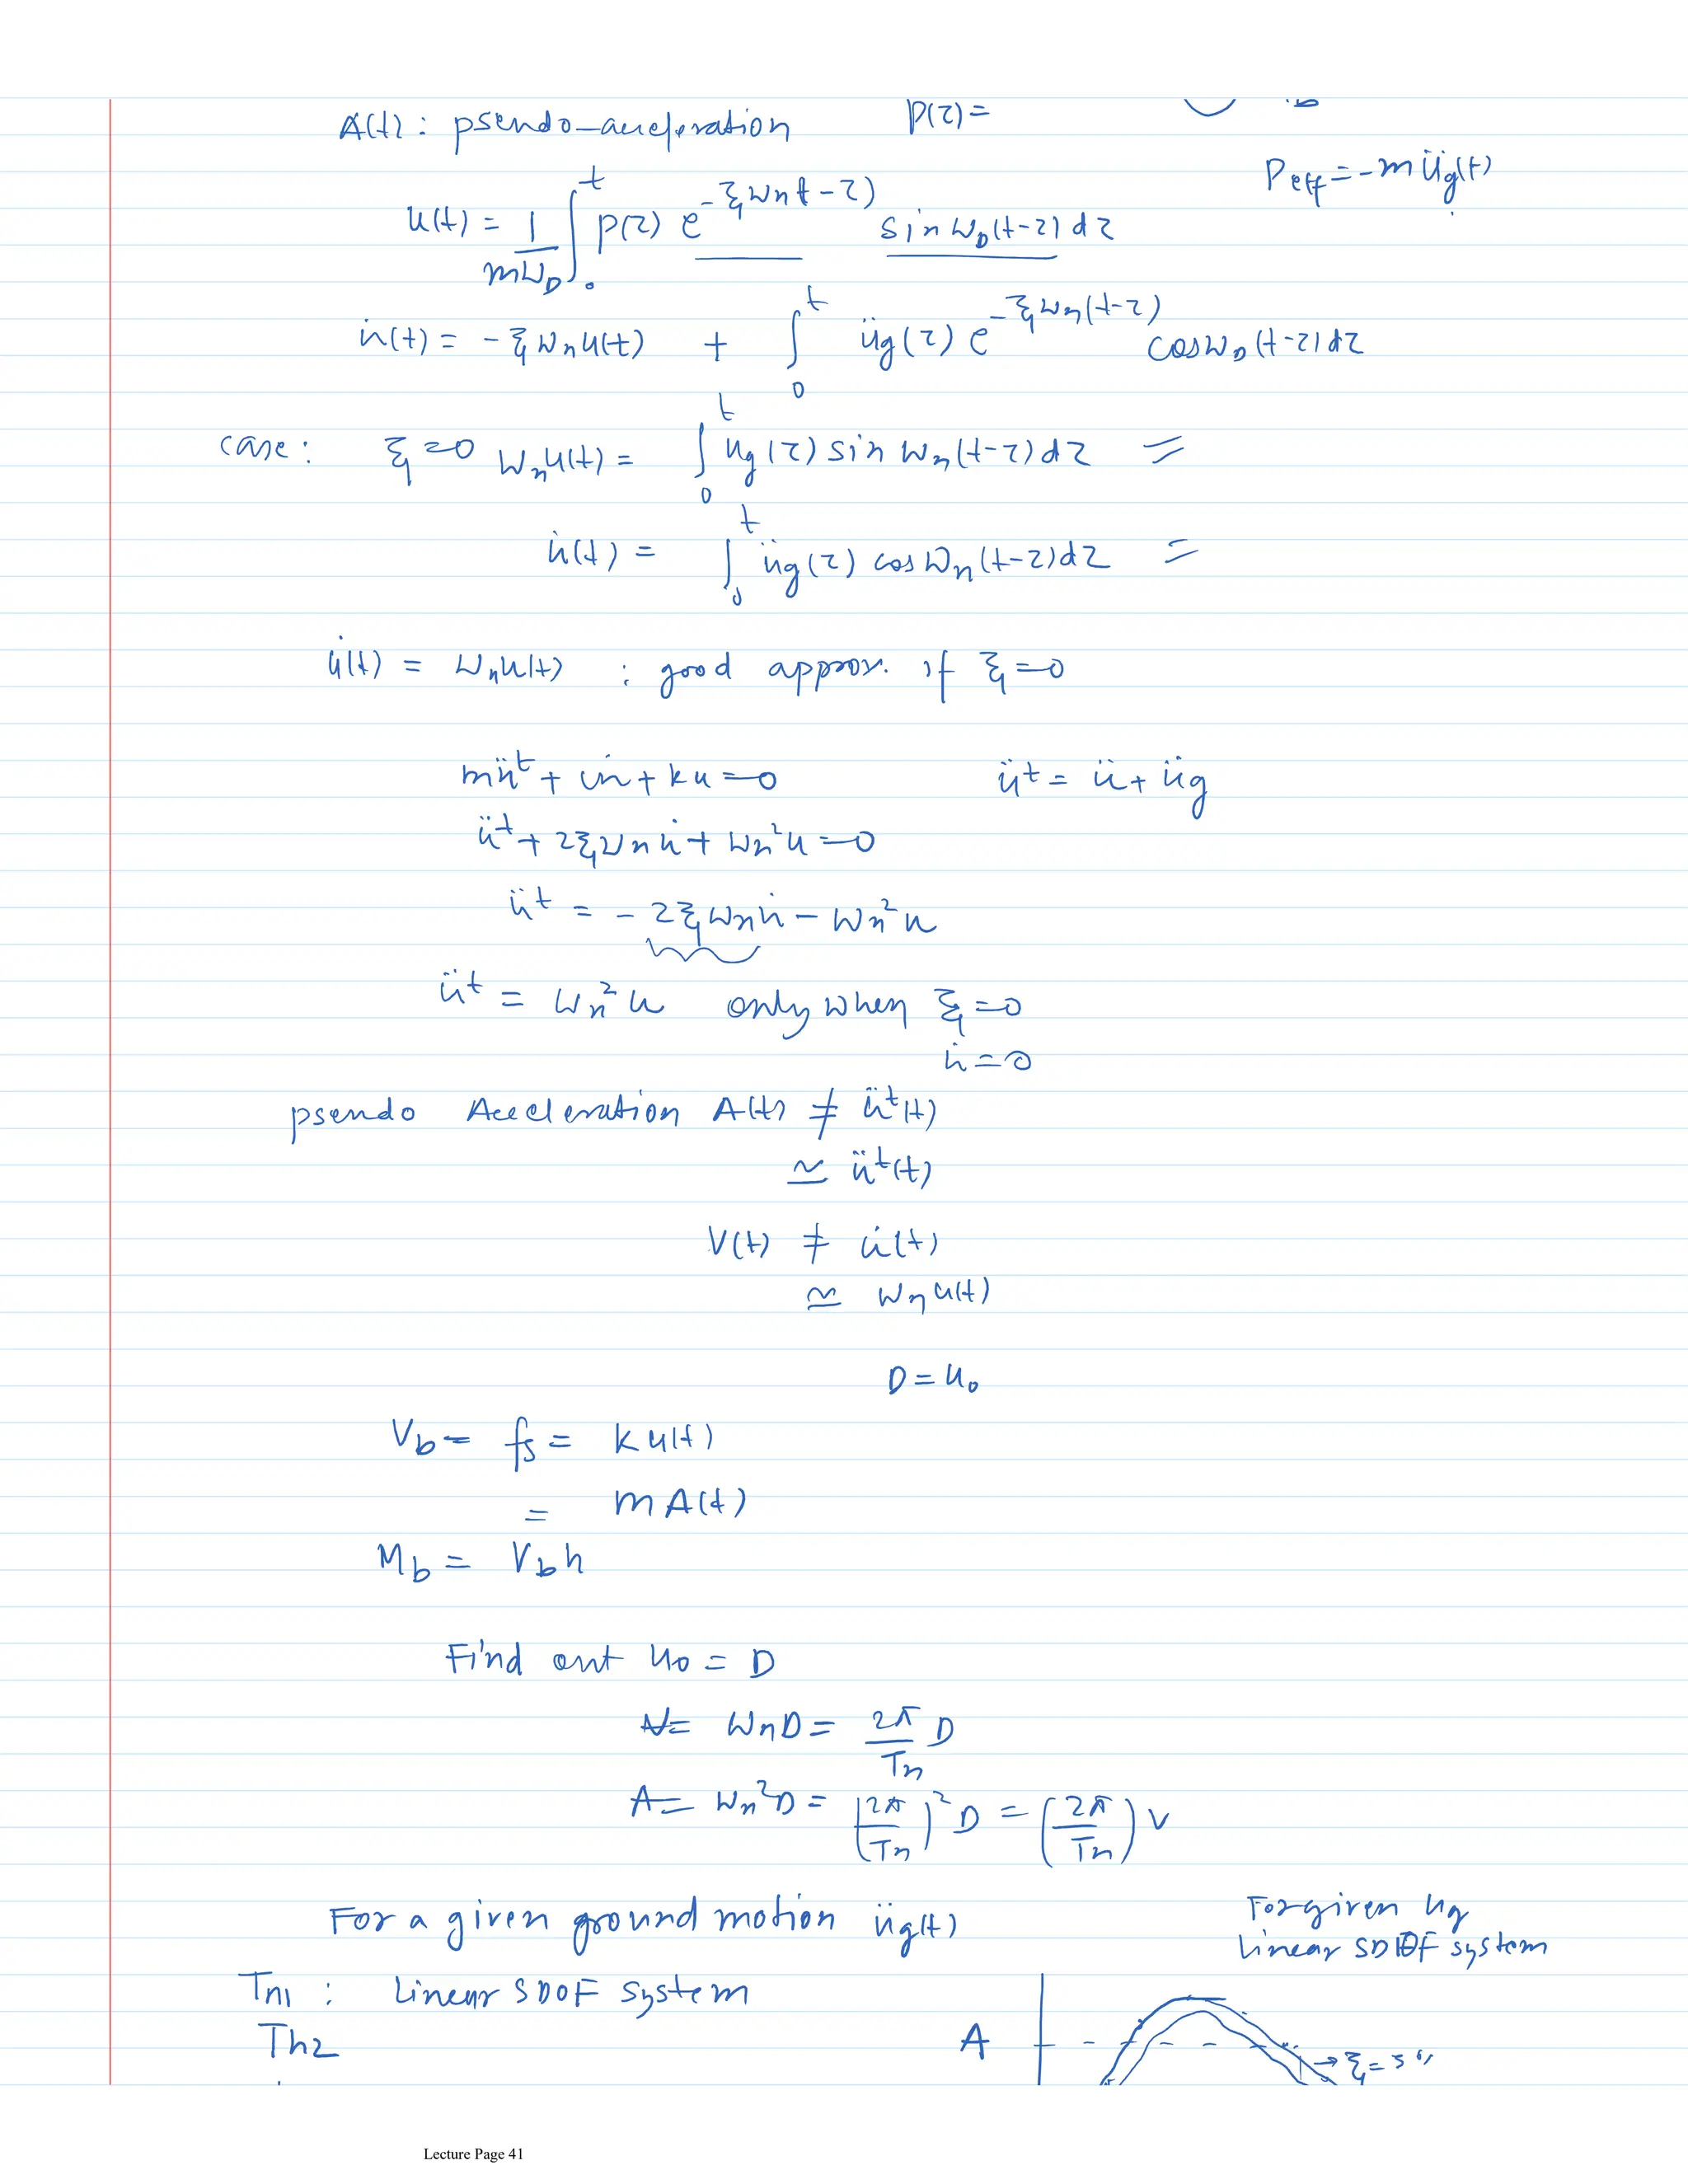 A(t): psendo-acceleration P(τ)=
Peff = -m üg(t)
u(t) = 1/(mωD) ∫₀ᵗ p(τ) e^(-ξωn t-τ) sin ωD(t-τ) dτ
u̇(t) = -ξωn u(t) + ∫₀ᵗ üg(τ) e^(-ξωn(t-τ)) cos ωD(t-τ) dτ
case: ξ=0 ωn u(t) = ∫₀ᵗ üg(τ) sin ωn(t-τ) dτ =
u̇(t) = ∫₀ᵗ üg(τ) cos ωn(t-τ) dτ =
u̇(t) = ωn u(t) : good approx. if ξ=0
müᵗ + cu̇ + ku = 0 üᵗ = ü + üg
üᵗ + 2ξωn u̇ + ωn²u = 0
üᵗ = - 2ξωn u̇ - ωn²u
üᵗ = ωn²u only when ξ=0
u̇=0
psendo Acceleration A(t) ≠ üᵗ(t)
≃ üᵗ(t)
V(t) ≠ u̇(t)
≃ ωn u(t)
D = u₀
Vb = fs = k u(t)
= m A(t)
Mb = Vb h
Find out u₀ = D
V = ωn D = 2π/Tn D
A = ωn² D = (2π/Tn)² D = (2π/Tn) V
For a given ground motion üg(t)
For given üg
Linear SDOF system
Tn1 : Linear SDOF system
Tn2
A
→ ξ = 5%
Lecture Page 41